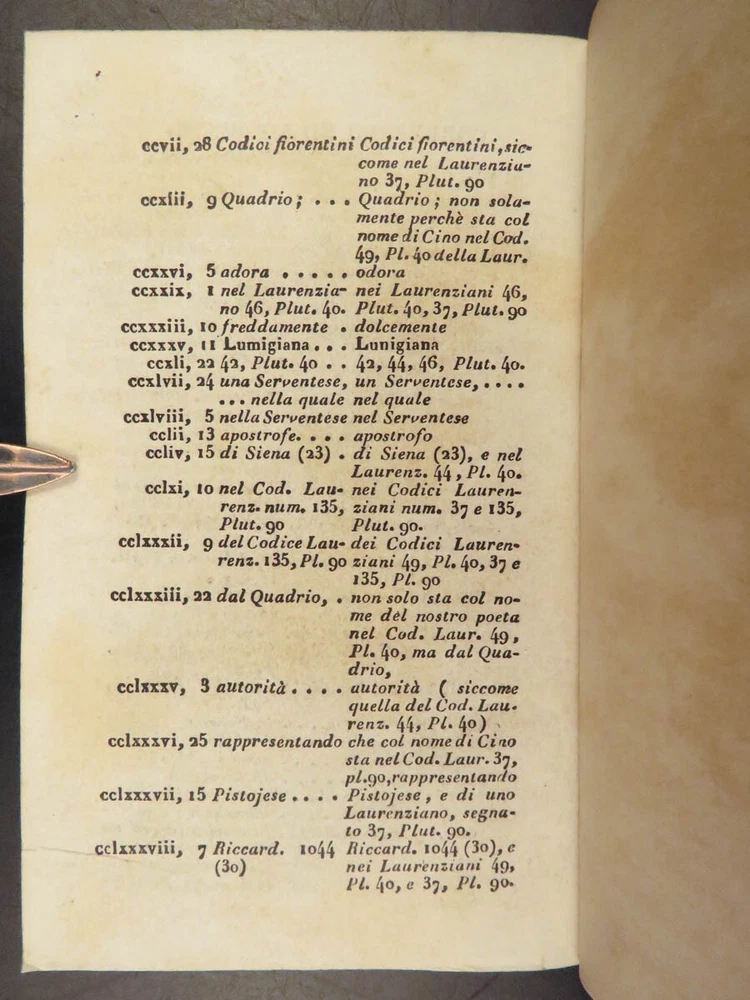 ccvii, 28 Codici fiorentini Codici fiorentini, sic-
come nel Laurenzia-
no 37, Plut. 90
ccxiii, 9 Quadrio; . . . Quadrio; non sola-
mente perchè sta col
nome di Cino nel Cod.
49, Pl. 40 della Laur.
ccxxvi, 5 adora . . . . . odora
ccxxix, 1 nel Laurenzia- nei Laurenziani 46,
no 46, Plut. 40. Plut. 40, 37, Plut. 90
ccxxxiii, 10 freddamente . dolcemente
ccxxxv, 11 Lumigiana . . . Lunigiana
ccxli, 22 42, Plut. 40 . . 42, 44, 46, Plut. 40.
ccxlvii, 24 una Serventese, un Serventese, . . . .
. . . nella quale nel quale
ccxlviii, 5 nella Serventese nel Serventese
cclii, 13 apostrofe. . . . apostrofo
ccliv, 15 di Siena (23) . di Siena (23), e nel
Laurenz. 44, Pl. 40.
cclxi, 10 nel Cod. Lau- nei Codici Lauren-
renz. num. 135, ziani num. 37 e 135,
Plut. 90 Plut. 90.
cclxxxii, 9 del Codice Lau- dei Codici Lauren-
renz. 135, Pl. 90 ziani 49, Pl. 40, 37 e
135, Pl. 90
cclxxxiii, 22 dal Quadrio, . non solo sta col no-
me del nostro poeta
nel Cod. Laur. 49,
Pl. 40, ma dal Qua-
drio,
cclxxxv, 3 autorità . . . . autorità ( siccome
quella del Cod. Lau-
renz. 44, Pl. 40)
cclxxxvi, 25 rappresentando che col nome di Cino
sta nel Cod. Laur. 37,
pl. 90, rappresentando
cclxxxvii, 15 Pistojese . . . . Pistojese, e di uno
Laurenziano, segna-
to 37, Plut. 90.
cclxxxviii, 7 Riccard. 1044 Riccard. 1044 (30), e
(30) nei Laurenziani 49,
Pl. 40, e 37, Pl. 90.